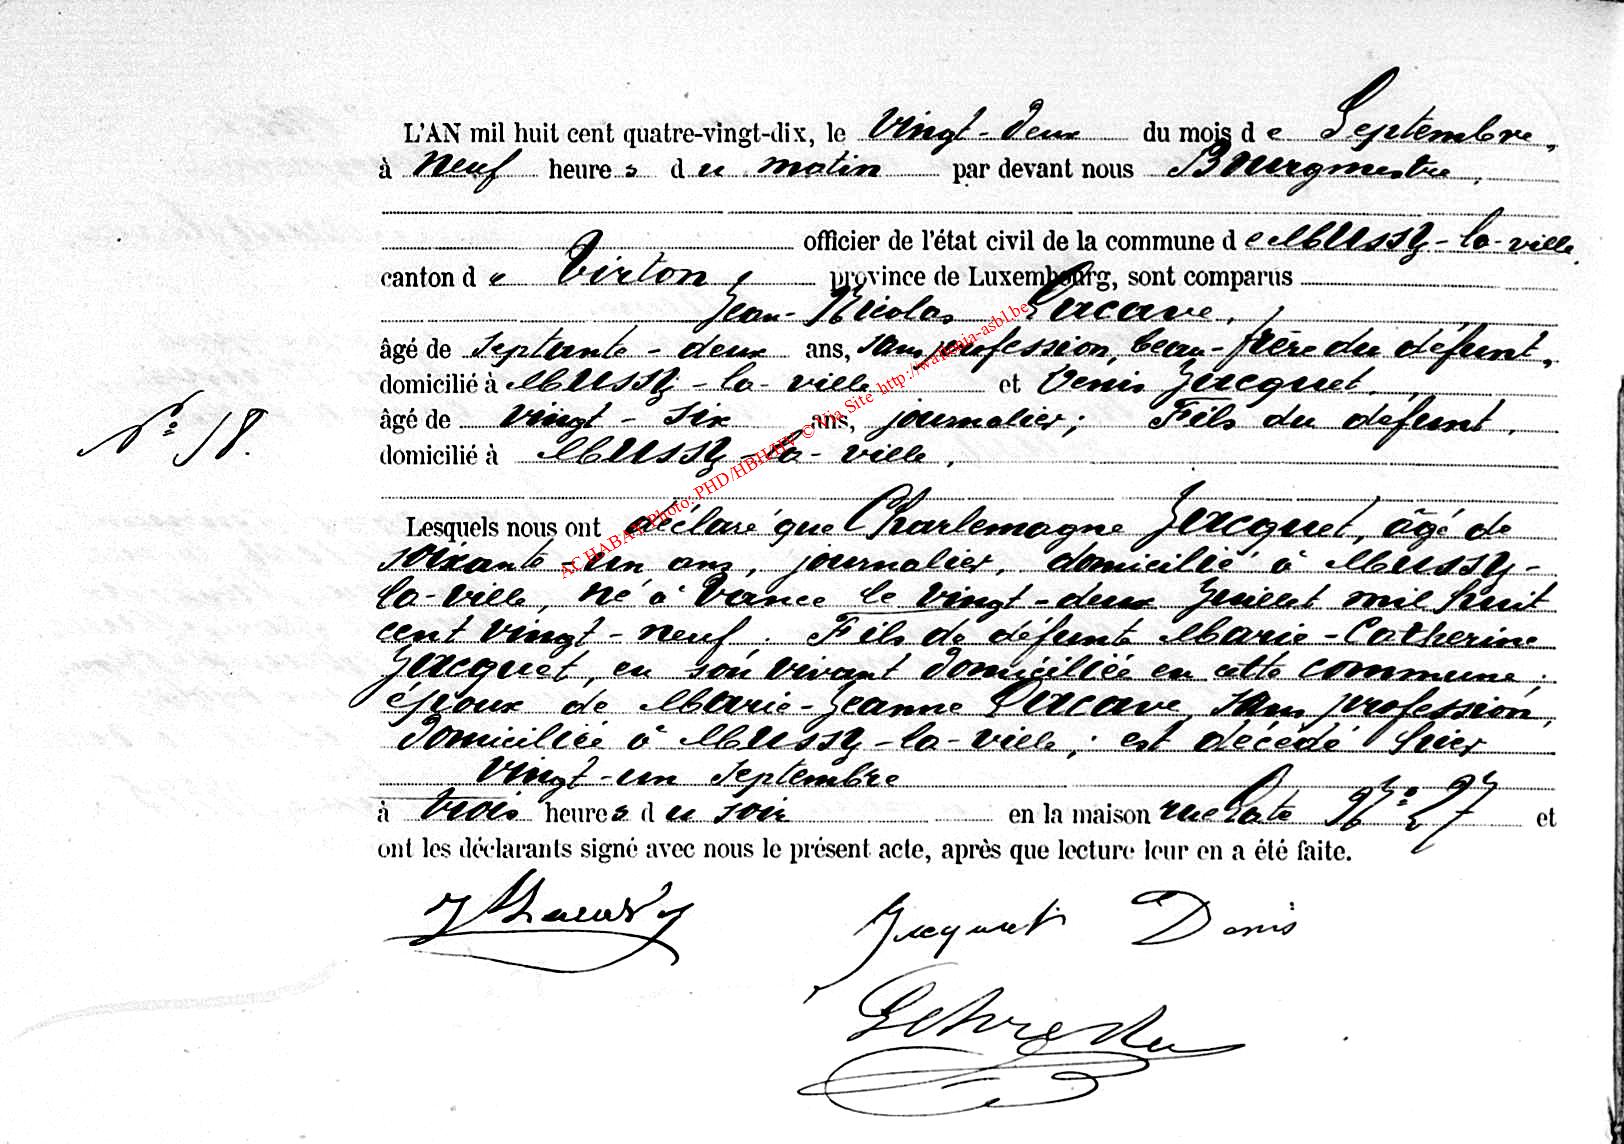 L'AN mil huit cent quatre-vingt-dix, le vingt-deux du mois de Septembre,
à neuf heures du matin par devant nous Bourgmestre,
officier de l'état civil de la commune de Mussy-la-ville
canton de Virton, province de Luxembourg, sont comparus
Jean-Nicolas Lacave,
âgé de septante-deux ans, sans profession, beau-frère du défunt,
domicilié à Mussy-la-ville et Denis Jacquet,
N° 18. âgé de vingt-six ans, journalier; Fils du défunt,
domicilié à Mussy-la-ville,
Lesquels nous ont déclaré que Charlemagne Jacquet, âgé de
soixante-un ans, journalier, domicilié à Mussy-
la-ville, né à Vance le vingt-deux Juillet mil huit
cent vingt-neuf. Fils de défunte Marie-Catherine
Jacquet, en son vivant domiciliée en cette commune,
époux de Marie-Jeanne Lacave, sans profession,
domiciliée à Mussy-la-ville; est décédé hier
vingt-un septembre
à trois heures du soir en la maison rue N° 27 et
ont les déclarants signé avec nous le présent acte, après que lecture leur en a été faite.
Jacquet Denis
AC HABAY Photo: PHD/HBH/HV © Via Site http://wallonia-asbl.be